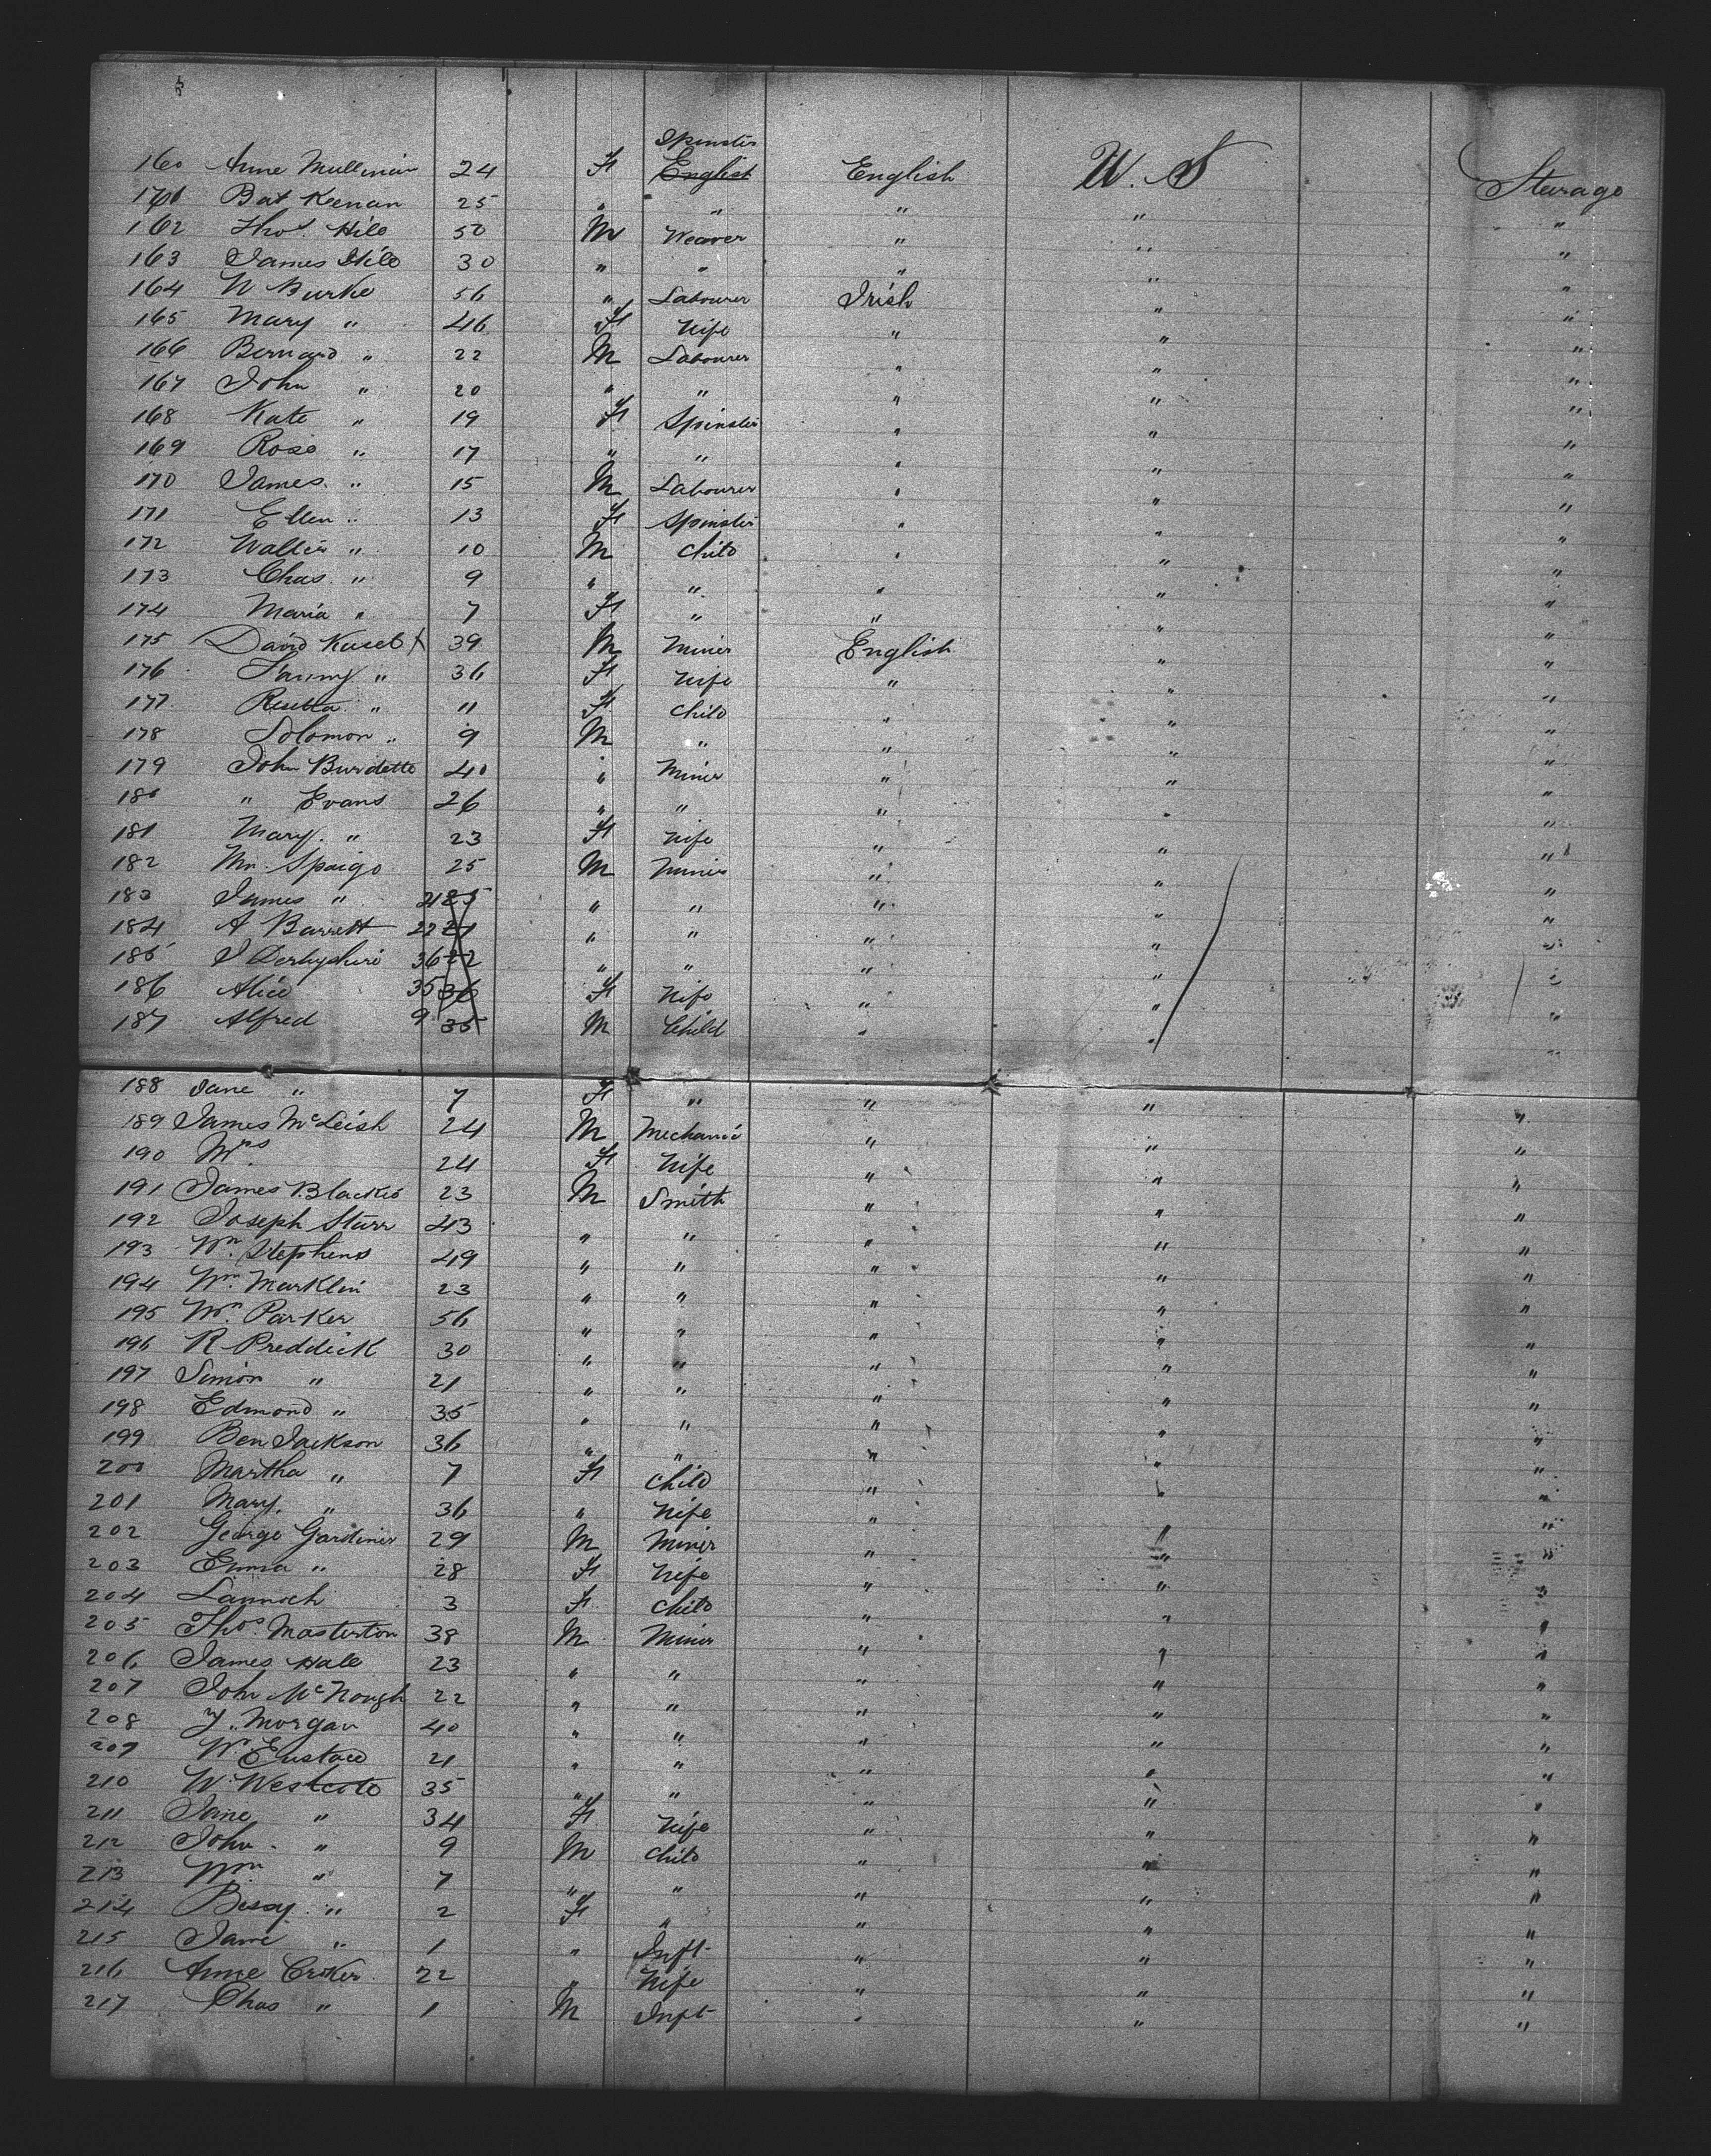 Spinster
160 Anne Mullinar 24 F English English U. S Steerage
161 Bat Keenan 25 " " " " "
162 Thos. Hile 50 M Weaver " " "
163 James Hile 30 " " " " "
164 W Burke 56 " Labourer Irish " "
165 Mary " 46 F Wife " " "
166 Bernard " 22 M Labourer " " "
167 John " 20 " " " " "
168 Kate " 19 F Spinster " " "
169 Rose " 17 " " " " "
170 James " 15 M Labourer " " "
171 Ellen " 13 F Spinster " " "
172 Walter " 10 M Child " " "
173 Chas " 9 " " " " "
174 Maria " 7 F " " " "
175 David Kuseb X 39 M Miner English " "
176 Fanny " 36 F Wife " " "
177 Rosetta " 11 F Child " " "
178 Solomon " 9 M " " " "
179 John Burdette 40 " Miner " " "
180 " Evans 26 " " " " "
181 Mary " 23 F Wife " " "
182 Wm. Spaigo 25 M Miner " " "
183 James " 21 25 " " " " "
184 A Barrett 22 21 " " " " "
185 J Derbyshire 36 22 " " " " "
186 Alice 35 36 F Wife " " "
187 Alfred 9 35 M Child " " "
188 Jane " 7 F " " " "
189 James McLeish 24 M Mechanic " " "
190 Mrs 24 F Wife " " "
191 James Blackie 23 M Smith " " "
192 Joseph Starr 43 " " " " "
193 Wm. Stephens 49 " " " " "
194 Wm. Marklin 23 " " " " "
195 Wm. Parker 56 " " " " "
196 R Preddick 30 " " " " "
197 Simon " 21 " " " " "
198 Edmond " 35 " " " " "
199 Ben Jackson 36 " " " " "
200 Martha " 7 F Child " " "
201 Mary " 36 " Wife " " "
202 George Gardiner 29 M Miner " " "
203 Emma " 28 F Wife " " "
204 3 F Child " " "
205 Thos. Masterton 38 M Miner " " "
206 James Hale 23 " " " " "
207 John McNough 22 " " " " "
208 Y. Morgan 40 " " " " "
209 W. Eustace 21 " " " " "
210 W. Westcote 35 " " " " "
211 Jane " 34 F Wife " " "
212 John " 9 M Child " " "
213 Wm " 7 " " " " "
214 Bessy " 2 F " " " "
215 Jane " 1 " Inft " " "
216 Anne Croker 22 " Wife " " "
217 Chas " 1 M Inft " " "